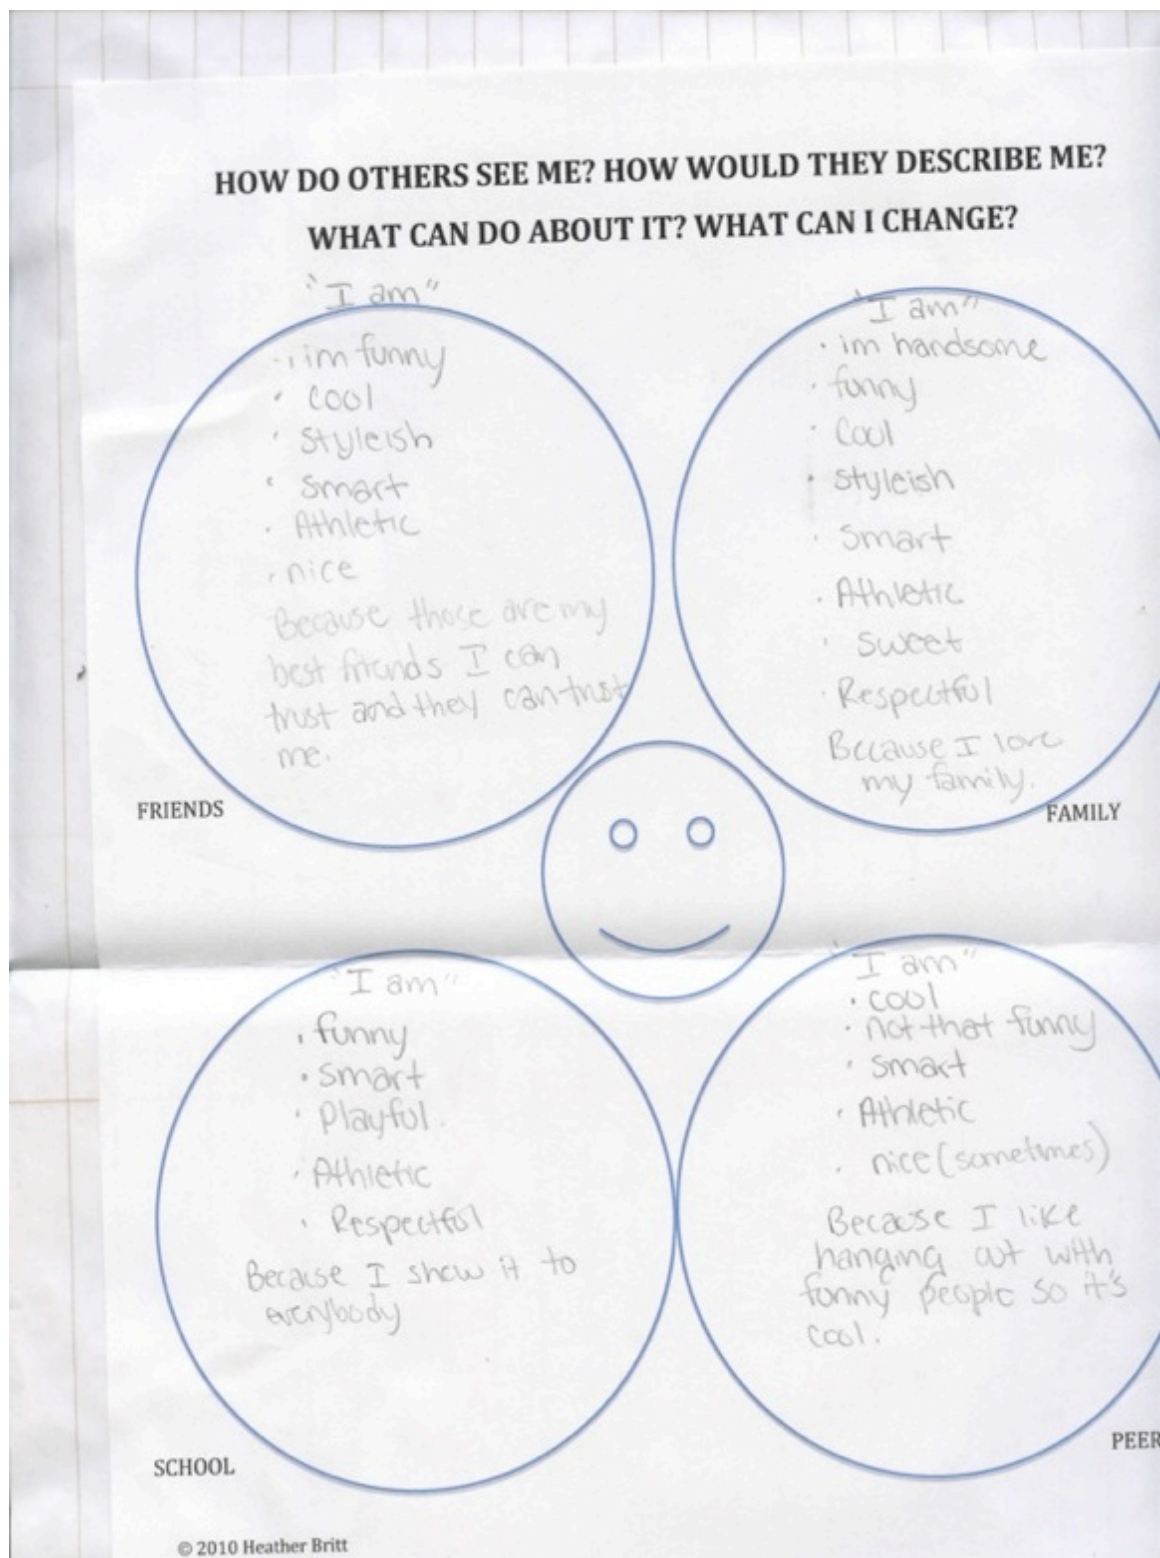 HOW DO OTHERS SEE ME? HOW WOULD THEY DESCRIBE ME?
WHAT CAN DO ABOUT IT? WHAT CAN I CHANGE?
"I am"
· im funny
· cool
· Styleish
· Smart
· Athletic
· nice
Because those are my
best friends I can
trust and they can trust
me.
FRIENDS
"I am"
· im handsome
· funny
· Cool
· Styleish
· Smart
· Athletic
· Sweet
· Respectful
Because I love
my family.
FAMILY
"I am"
· funny
· Smart
· Playful.
· Athletic
· Respectful
Because I show it to
everybody
SCHOOL
"I am"
· cool
· not that funny
· Smart
· Athletic
· nice (sometimes)
Because I like
hanging out with
funny people so it's
cool.
PEER
© 2010 Heather Britt